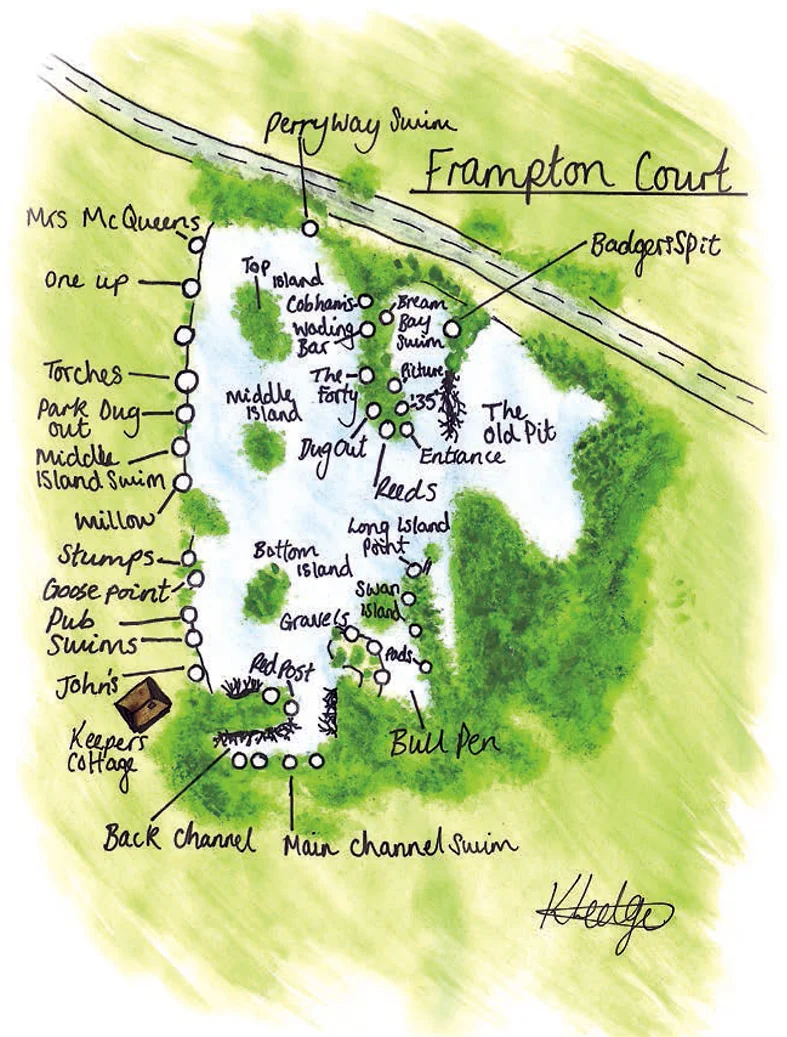 Perryway Swim
Frampton Court
Mrs McQueens
Badgers Spit
One up
Top
Island
Cobhams
Wading
Bar
Bream
Bay
Swim
Torches
The
Forty
Picture
'35'
Park Dug
out
Middle
Island
The
Old Pit
Middle
Island Swim
Dug Out
Entrance
Reeds
Willow
Long Island
Point
Stumps
Bottom
Island
Goose point
Swan
Island
Pub
Swims
Gravels
Pads
John's
Red Post
Keepers
Cottage
Bull Pen
Back Channel
Main Channel Swim